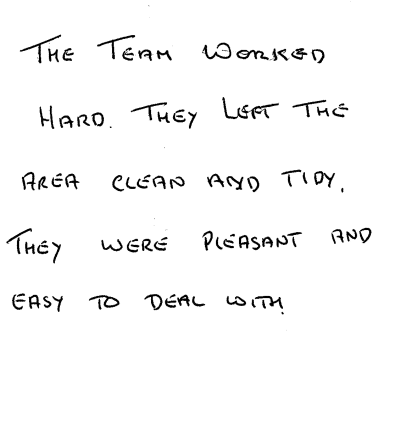 THE TEAM WORKED
HARD. THEY LEFT THE
AREA CLEAN AND TIDY.
THEY WERE PLEASANT AND
EASY TO DEAL WITH.